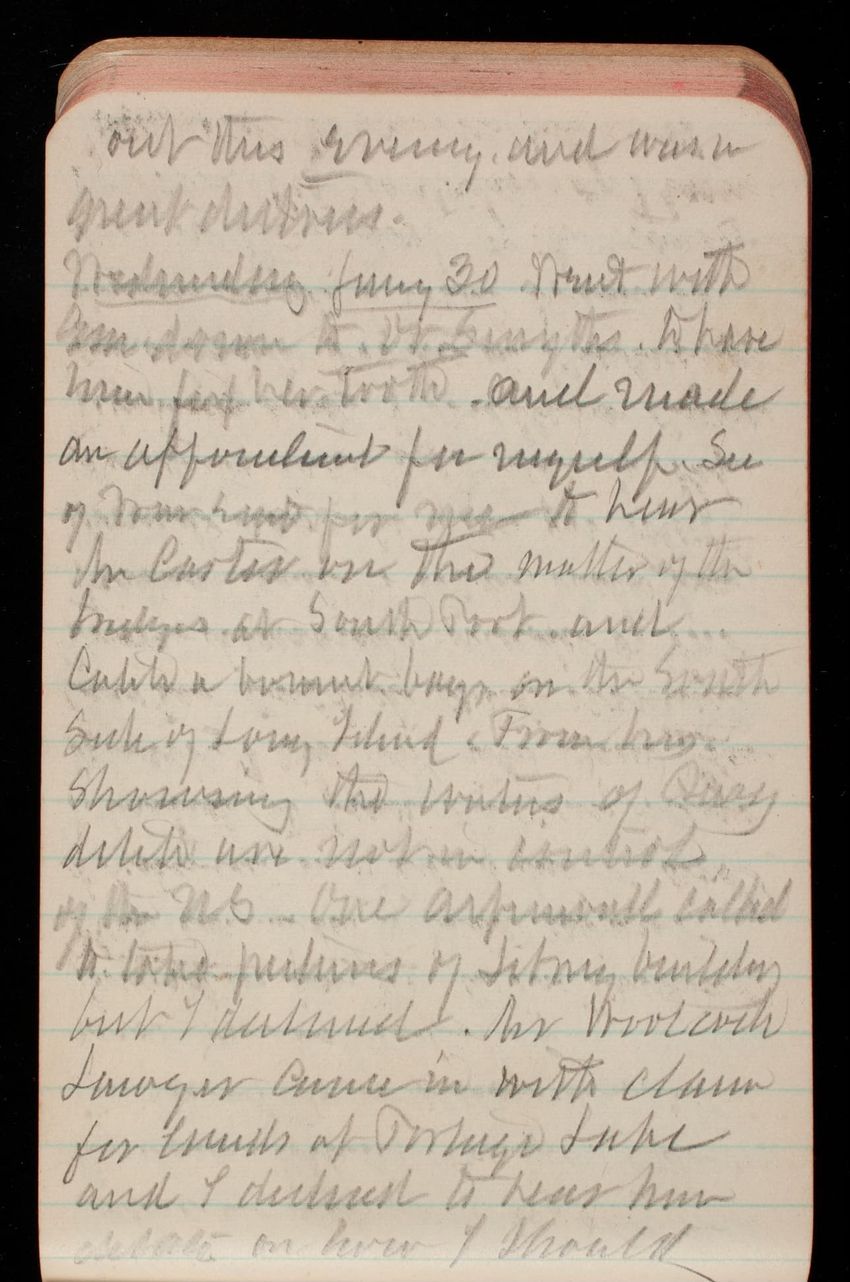 out this Evening. and was in
great distress.
Wednesday Jany 30 Went with
Em down to Dr Smyths. to have
him fix her tooth. and made
an appointment for myself. Sec
of War sent for me to hear
Mr Caster on the matter of the
bridges at South Port. and
Cable a bount bays on the South
Side of Long Island. From
Showing the waters of
are not in control
of the US. One called
to take pictures of Library building
but I declined. Mr Woolcock
Lawyer Came in with claim
for lands at Portage Lake
and I declined to hear him
debate on how I Should